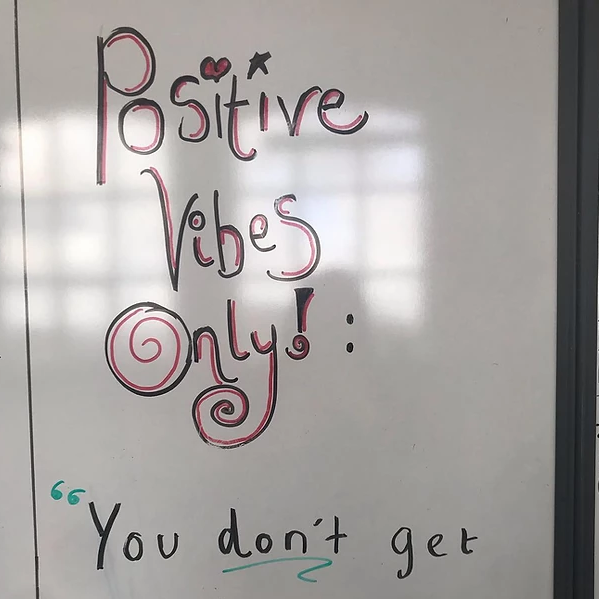 Positive
Vibes
Only! :
“You don't get